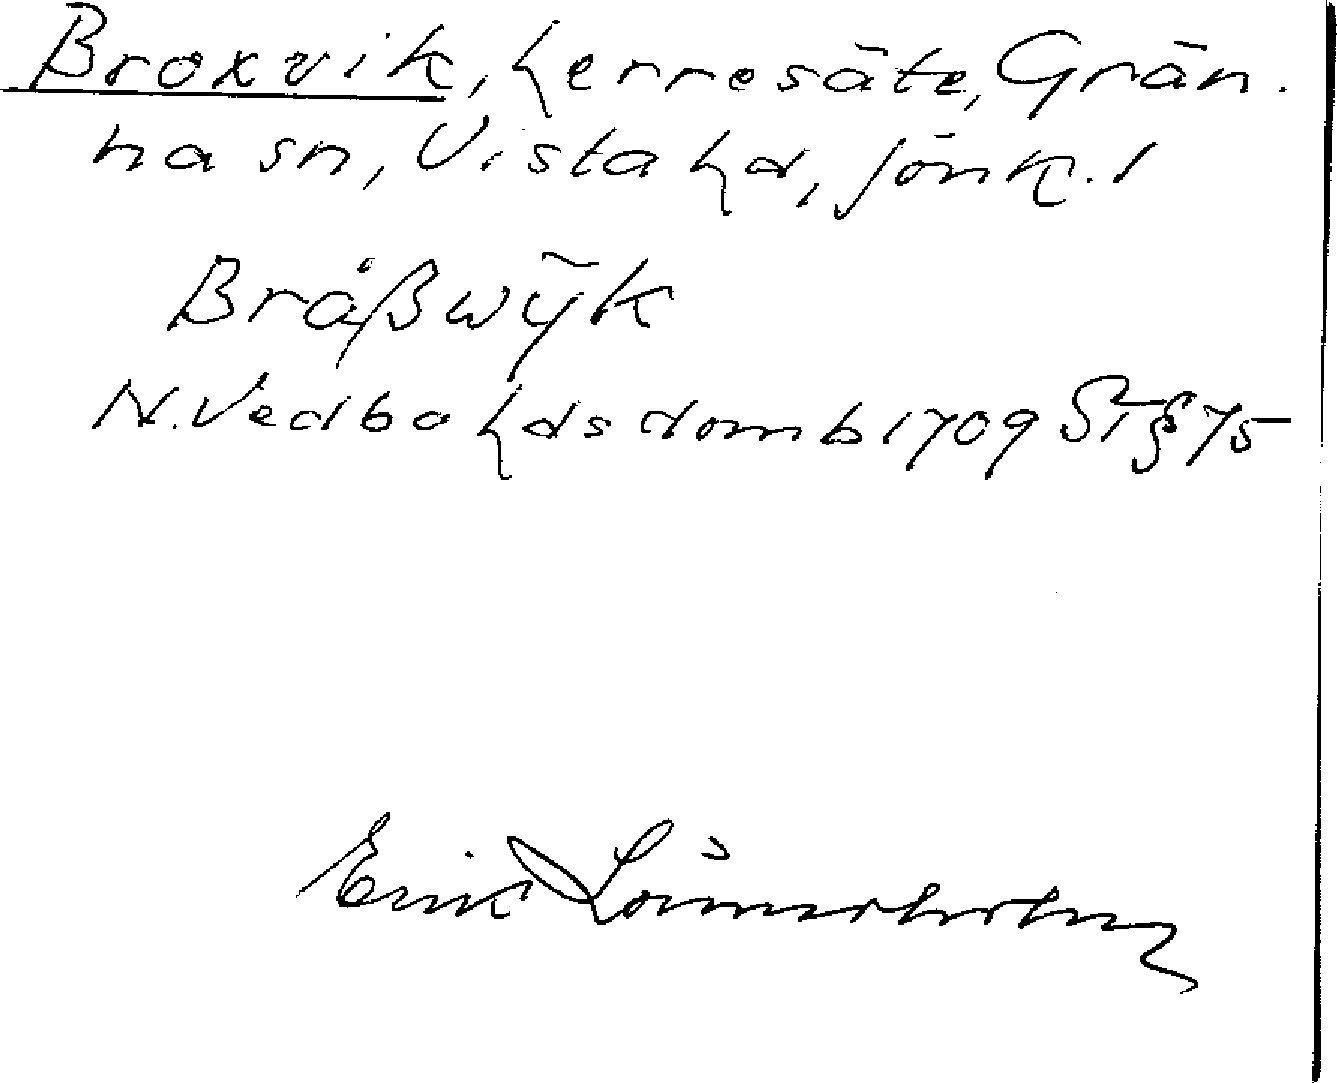 Broxvik, herresäte, Grän-
na sn, Vista hd, Jönk. l
Bråßwÿk
N. Vedbo hds domb 1709 ST § 75
Erik Lönnerholm